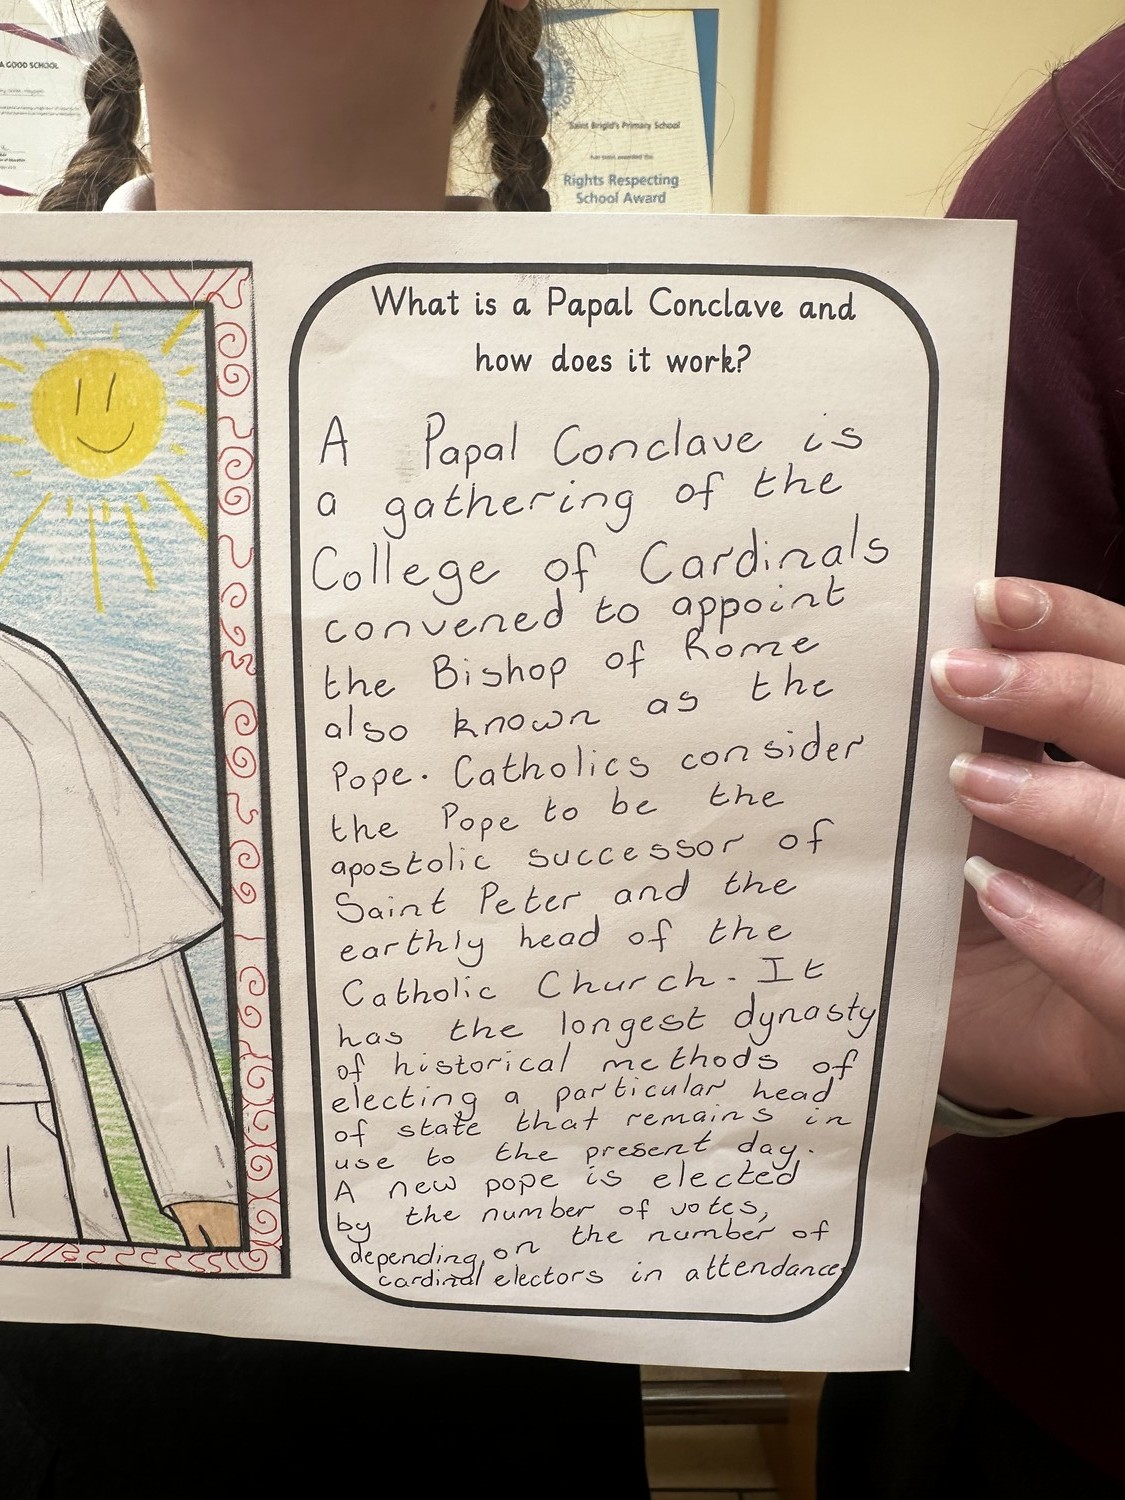 A GOOD SCHOOL
Saint Brigid's Primary School
has been awarded the
Rights Respecting
School Award
What is a Papal Conclave and
how does it work?
A Papal Conclave is
a gathering of the
College of Cardinals
convened to appoint
the Bishop of Rome
also known as the
Pope. Catholics consider
the Pope to be the
apostolic successor of
Saint Peter and the
earthly head of the
Catholic Church. It
has the longest dynasty
of historical methods of
electing a particular head
of state that remains in
use to the present day.
A new pope is elected
by the number of votes,
depending on the number of
cardinal electors in attendance.